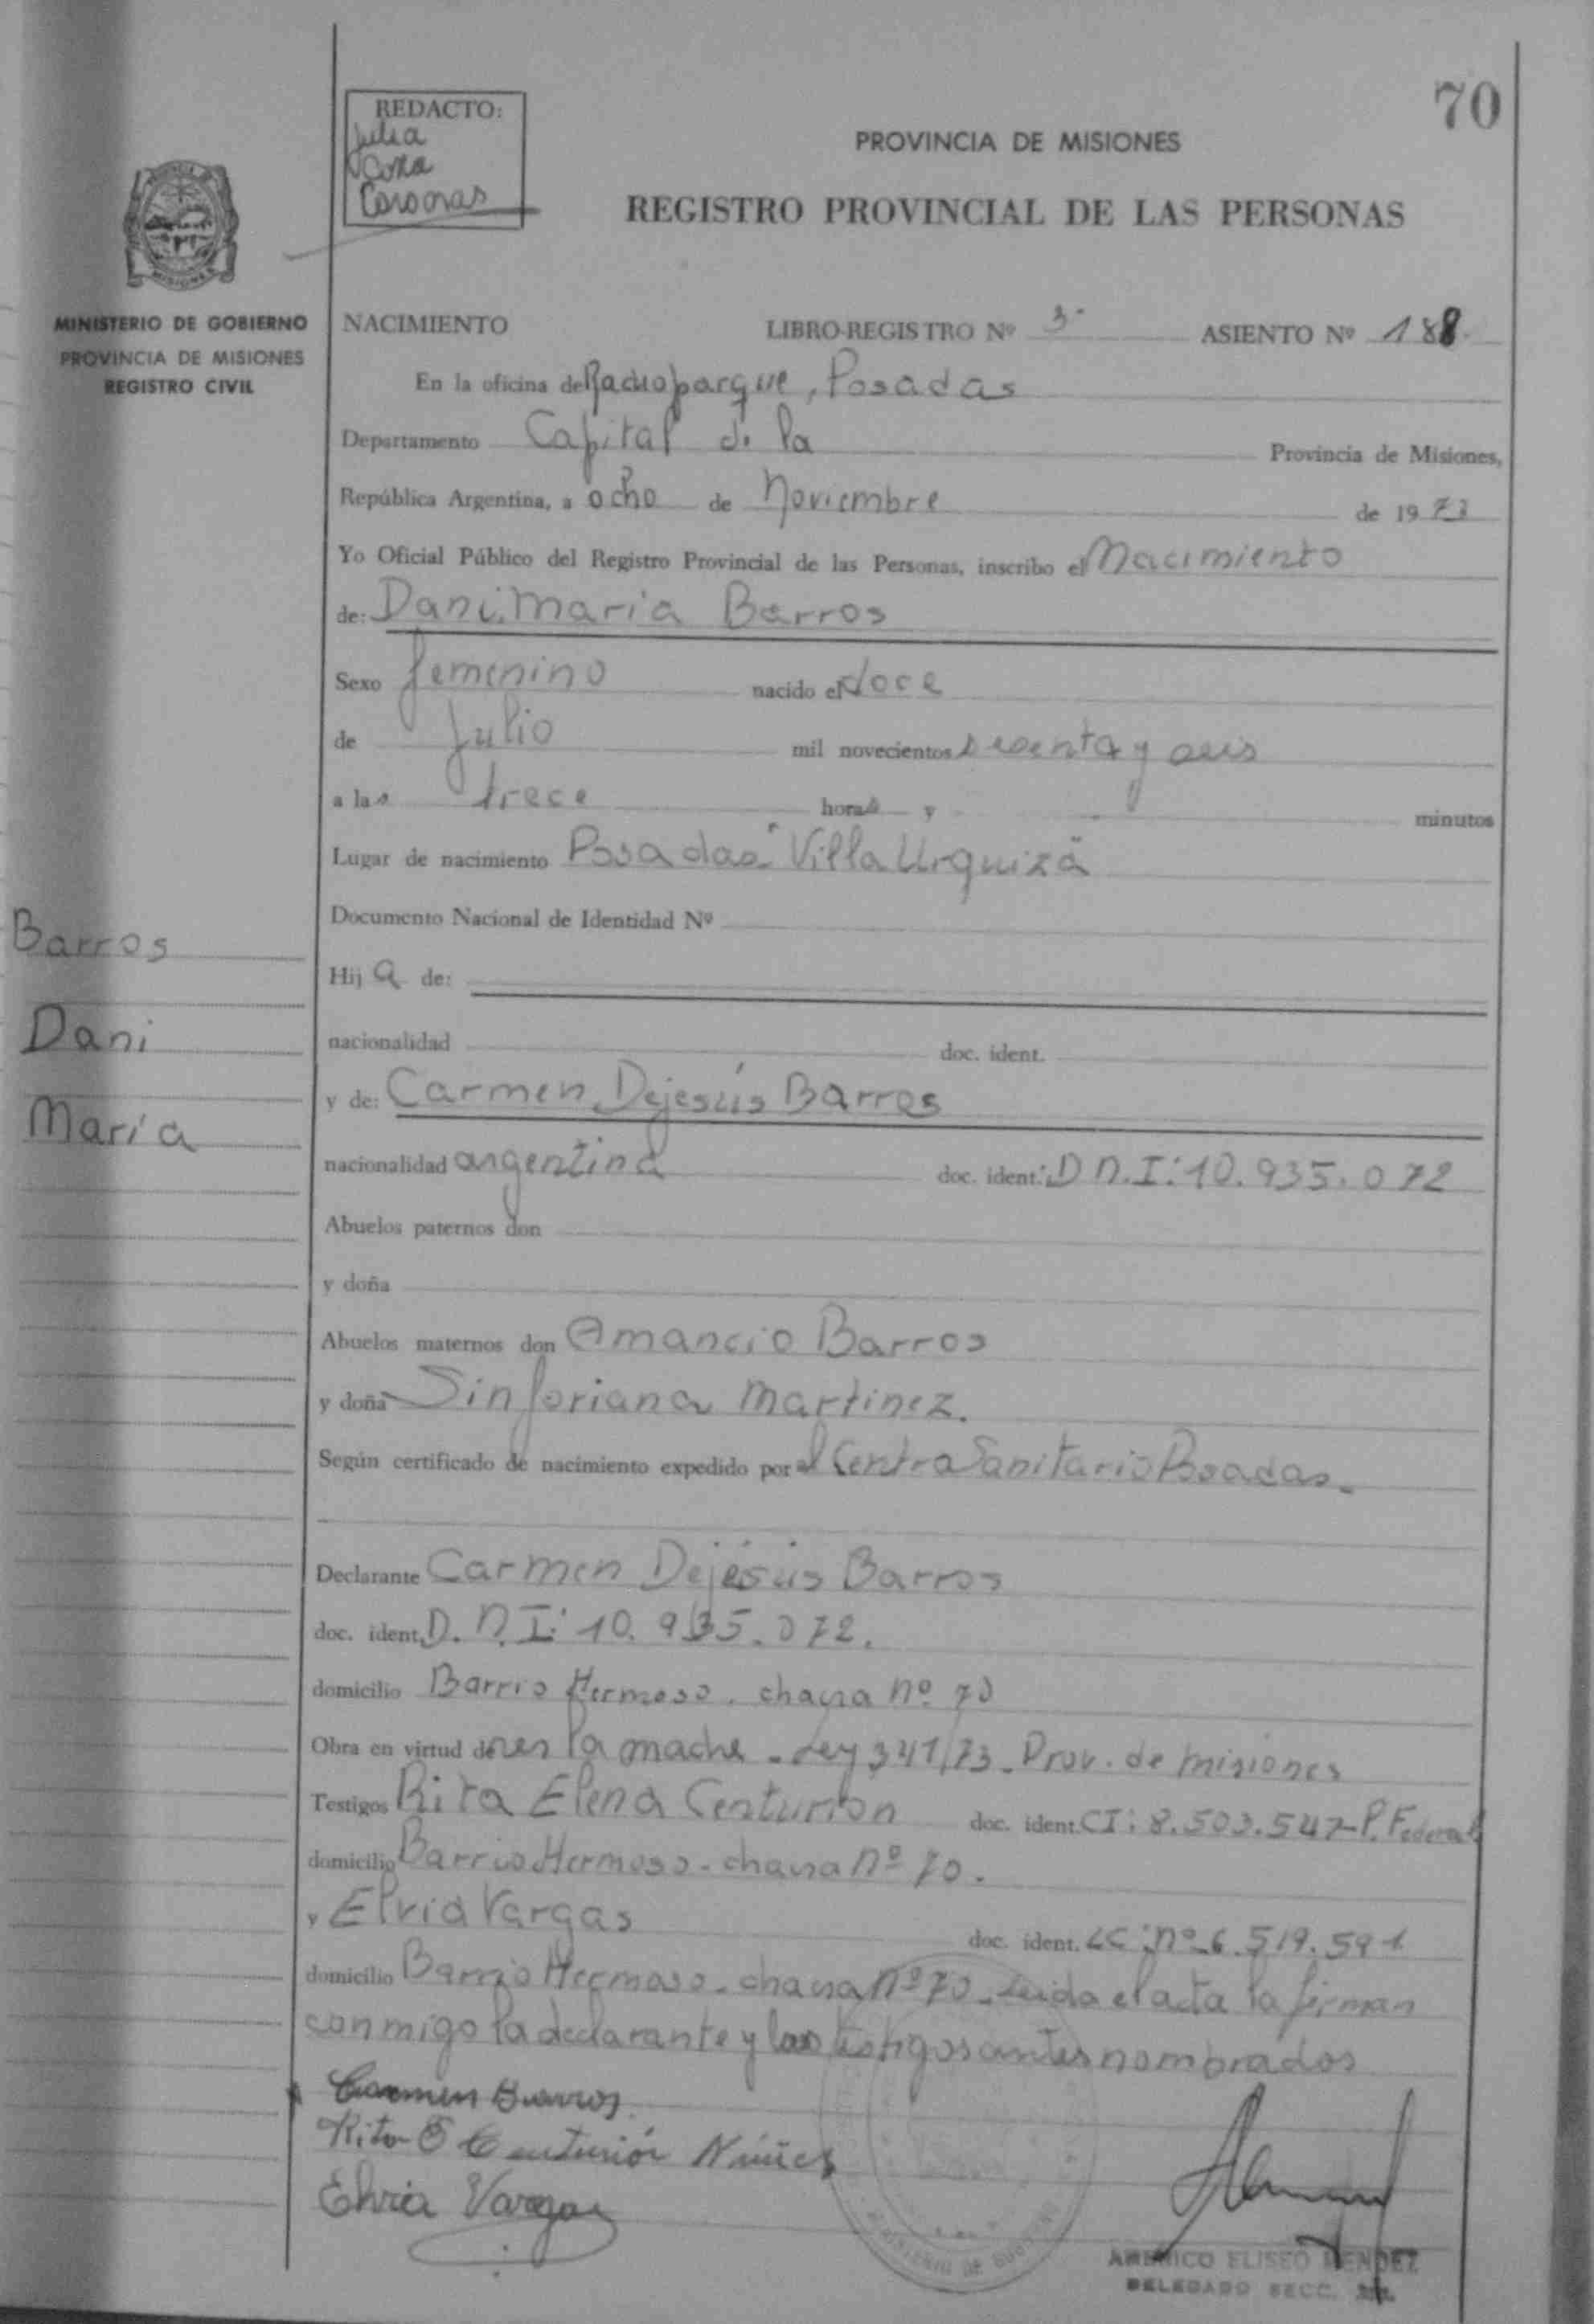 70
REDACTO:
Julia
PROVINCIA DE MISIONES
REGISTRO PROVINCIAL DE LAS PERSONAS
MISIONES
MINISTERIO DE GOBIERNO
PROVINCIA DE MISIONES
REGISTRO CIVIL
NACIMIENTO LIBRO-REGISTRO Nº 3º ASIENTO Nº 188
En la oficina de Radioparque, Posadas
Departamento Capital de la Provincia de Misiones,
República Argentina, a ocho de Noviembre de 1973
Yo Oficial Público del Registro Provincial de las Personas, inscribo el Nacimiento
de: Dani María Barros
Sexo femenino nacido el doce
de Julio mil novecientos sesenta y seis
a las trece horas y minutos
Lugar de nacimiento Posadas "Villa Urquiza"
Documento Nacional de Identidad Nº
Barros
Dani
María
Hija de:
nacionalidad doc. ident.
y de: Carmen Dejesús Barros
nacionalidad argentina doc. ident. D.N.I: 10.935.072
Abuelos paternos don
y doña
Abuelos maternos don Amancio Barros
y doña Sinforiana Martinez.
Según certificado de nacimiento expedido por el Centro Sanitario Posadas.
Declarante Carmen Dejesús Barros
doc. ident. D.N.I: 10.935.072.
domicilio Barrio Hermoso. chacra nº 70
Obra en virtud de ser la madre - Ley 341/73 - Prov. de misiones
Testigos Rita Elena Centurión doc. ident. CI: 8.503.547-P. Federal
domicilio Barrio Hermoso - chacra nº 70.
y Elvia Vargas doc. ident. LC: nº 6.519.591
domicilio Barrio Hermoso - chacra nº 70 - Leida el acta la firman
conmigo la declarante y los testigos antes nombrados
Carmen Barros
Rita E Centurión Núñez
Elvia Vargas
MINISTERIO DE GOBIERNO
AMERICO ELISEO MENDEZ
DELEGADO SECC.